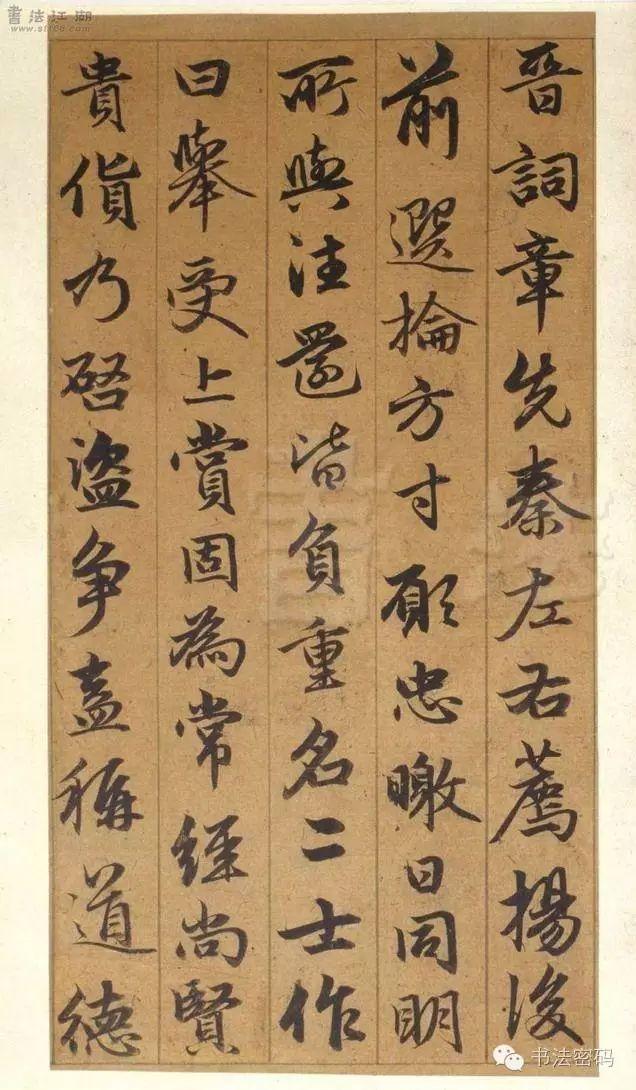 晉詞章先秦左右薦揚後
前選掄方寸愿忠曒日同明
所與注還皆負重名二士作
曰舉受上賞固為常經尚賢
貴貨乃啓盜爭盍稱道德
書法江湖
www.sf108.com
书法密码